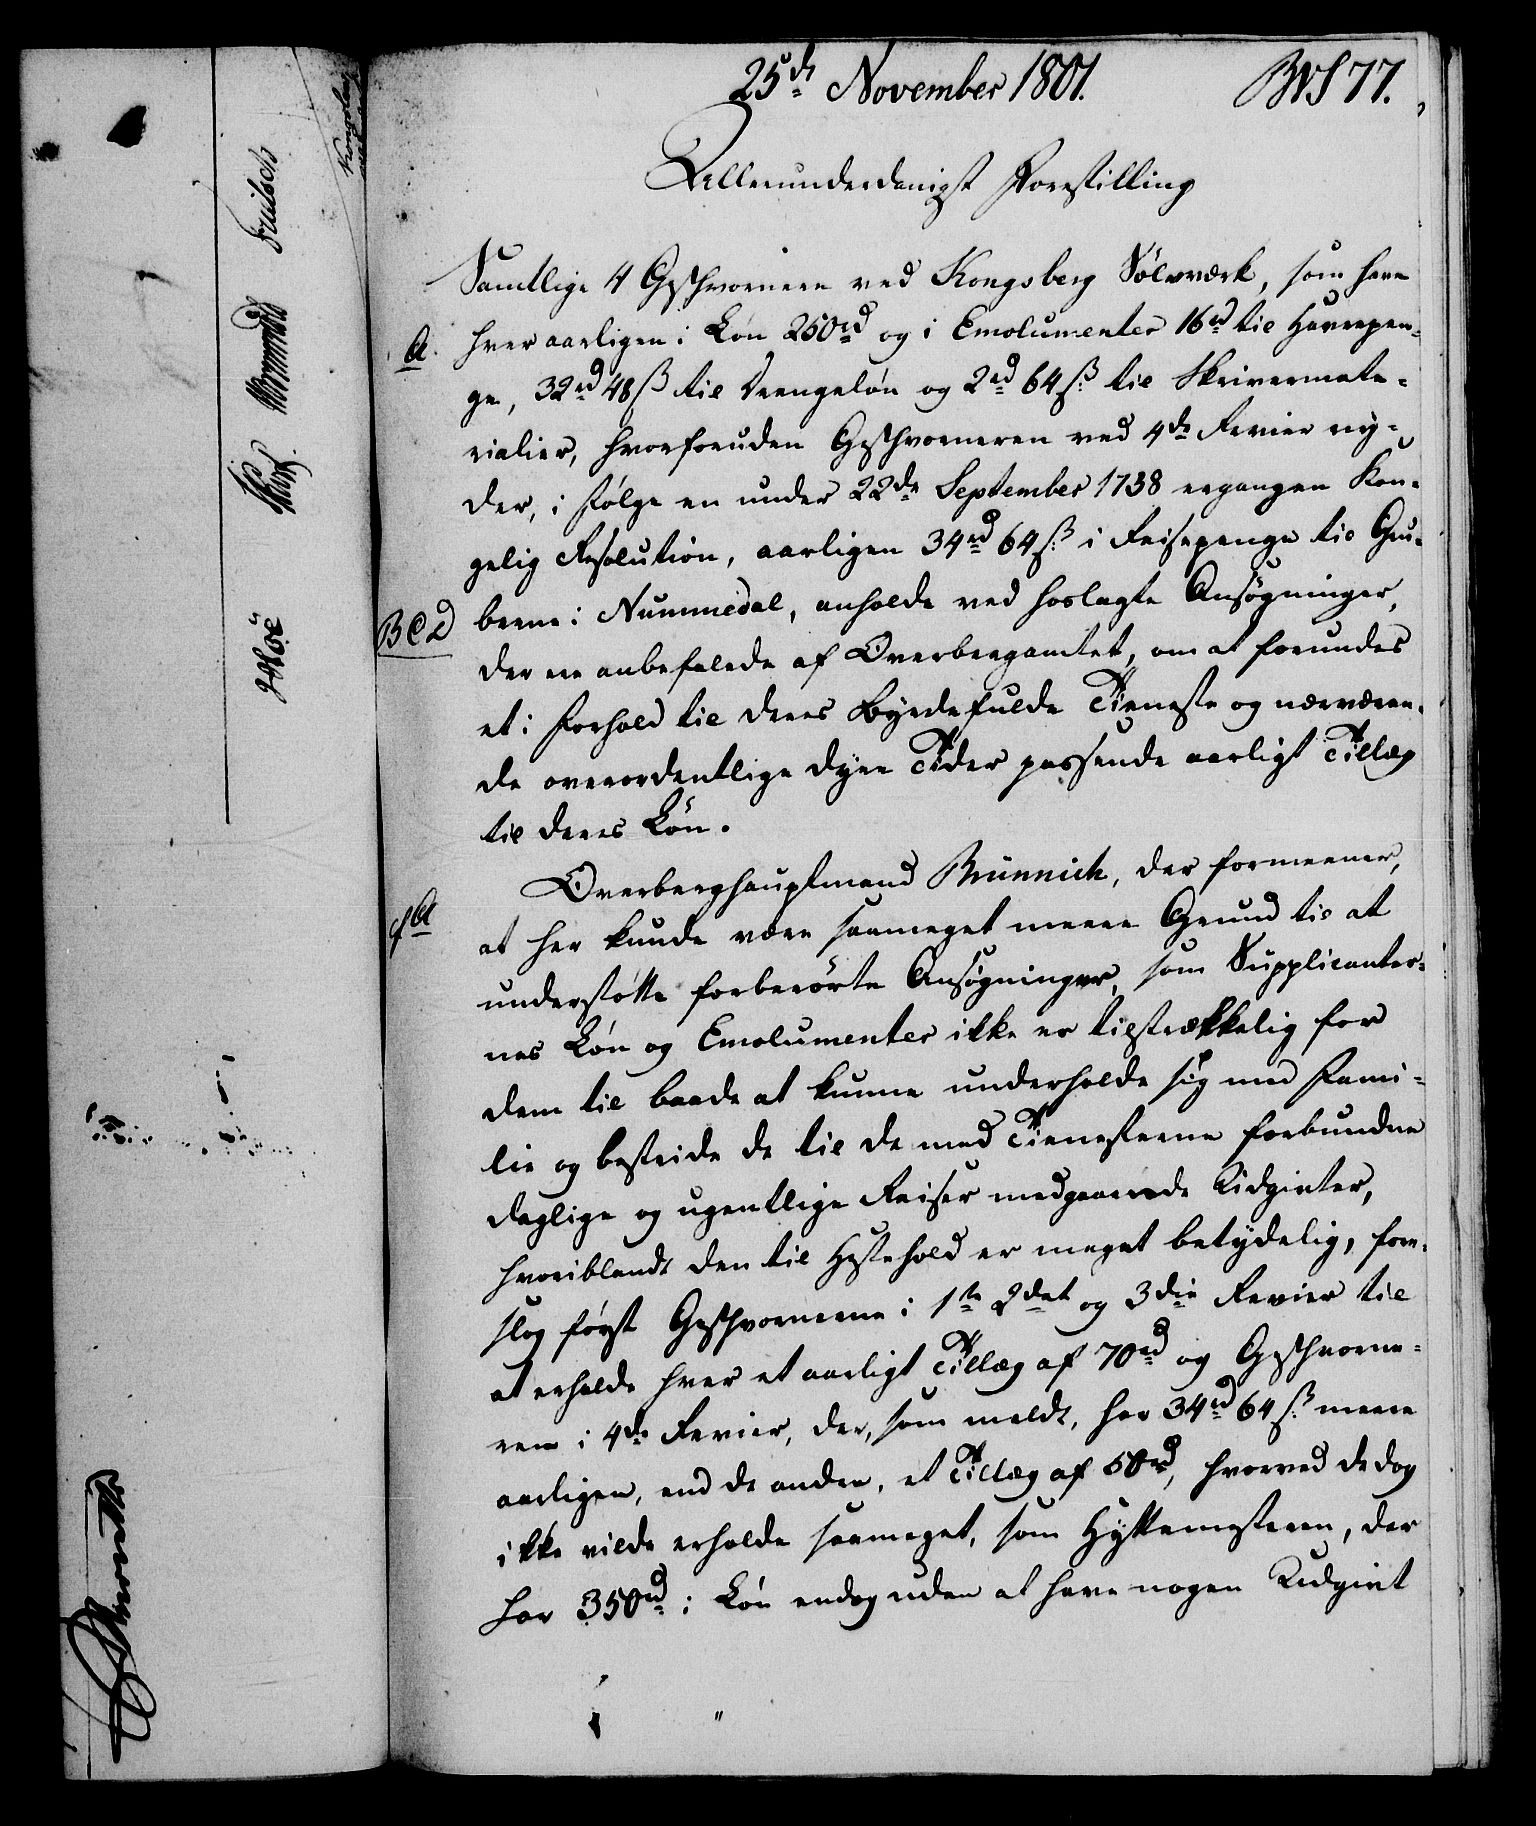 25de November 1801. BVS 77.
Allerunderdanigst Forestilling
Samtlige 4 Geschvornere ved Kongsberg Sølvværk, som have
A. hver aarligen i Løn 250rd og i Emolumenter 16rd til Havrepen-
ge, 32rd 48ß til Drengeløn og 2rd 64ß til Skrivermate-
rialier, hvorforuden Geschvorneren ved 4de Revier ny-
der, i Følge en under 22de September 1738 ergangen Kon-
gelig Resolution, aarligen 34rd 64ß i Reisepenge til Gru-
BCD berne i Nummedal, anholde ved hoslagte Ansøgninger,
der ere anbefalede af Overbergamtet, om at forundes
et i Forhold til deres Byrdefulde Tieneste og nærværen-
de overordentlige dyre Tider passende aarligt Tillæg
til deres Løn.
Overberghauptmand Brünnich, der formeener,
f A at her kunde være saameget meere Grund til at
understøtte forberørte Ansøgninger, som Supplicanter-
nes Løn og Emolumenter ikke er tilstrækkelig for
dem til baade at kunne underholde sig med Fami-
lie og bestride de til de med Tienesterne forbundne
daglige og ugentlige Reiser medgaaende Udgivter,
hvoriblandt den til Hestehold er meget betydelig, fore-
slog først Geschvornerne i 1ste 2det og 3die Revier til
at erholde hver et aarligt Tillæg af 70rd og Geschvorne-
ren i 4de Revier, der, som meldt, har 34rd 64ß meere
aarligen, end de andre, et Tillæg af 50rd, hvorved de dog
ikke vilde erholde saameget, som Hyttemesteren, der
har 350rd i Løn endog uden at have nogen Udgivt